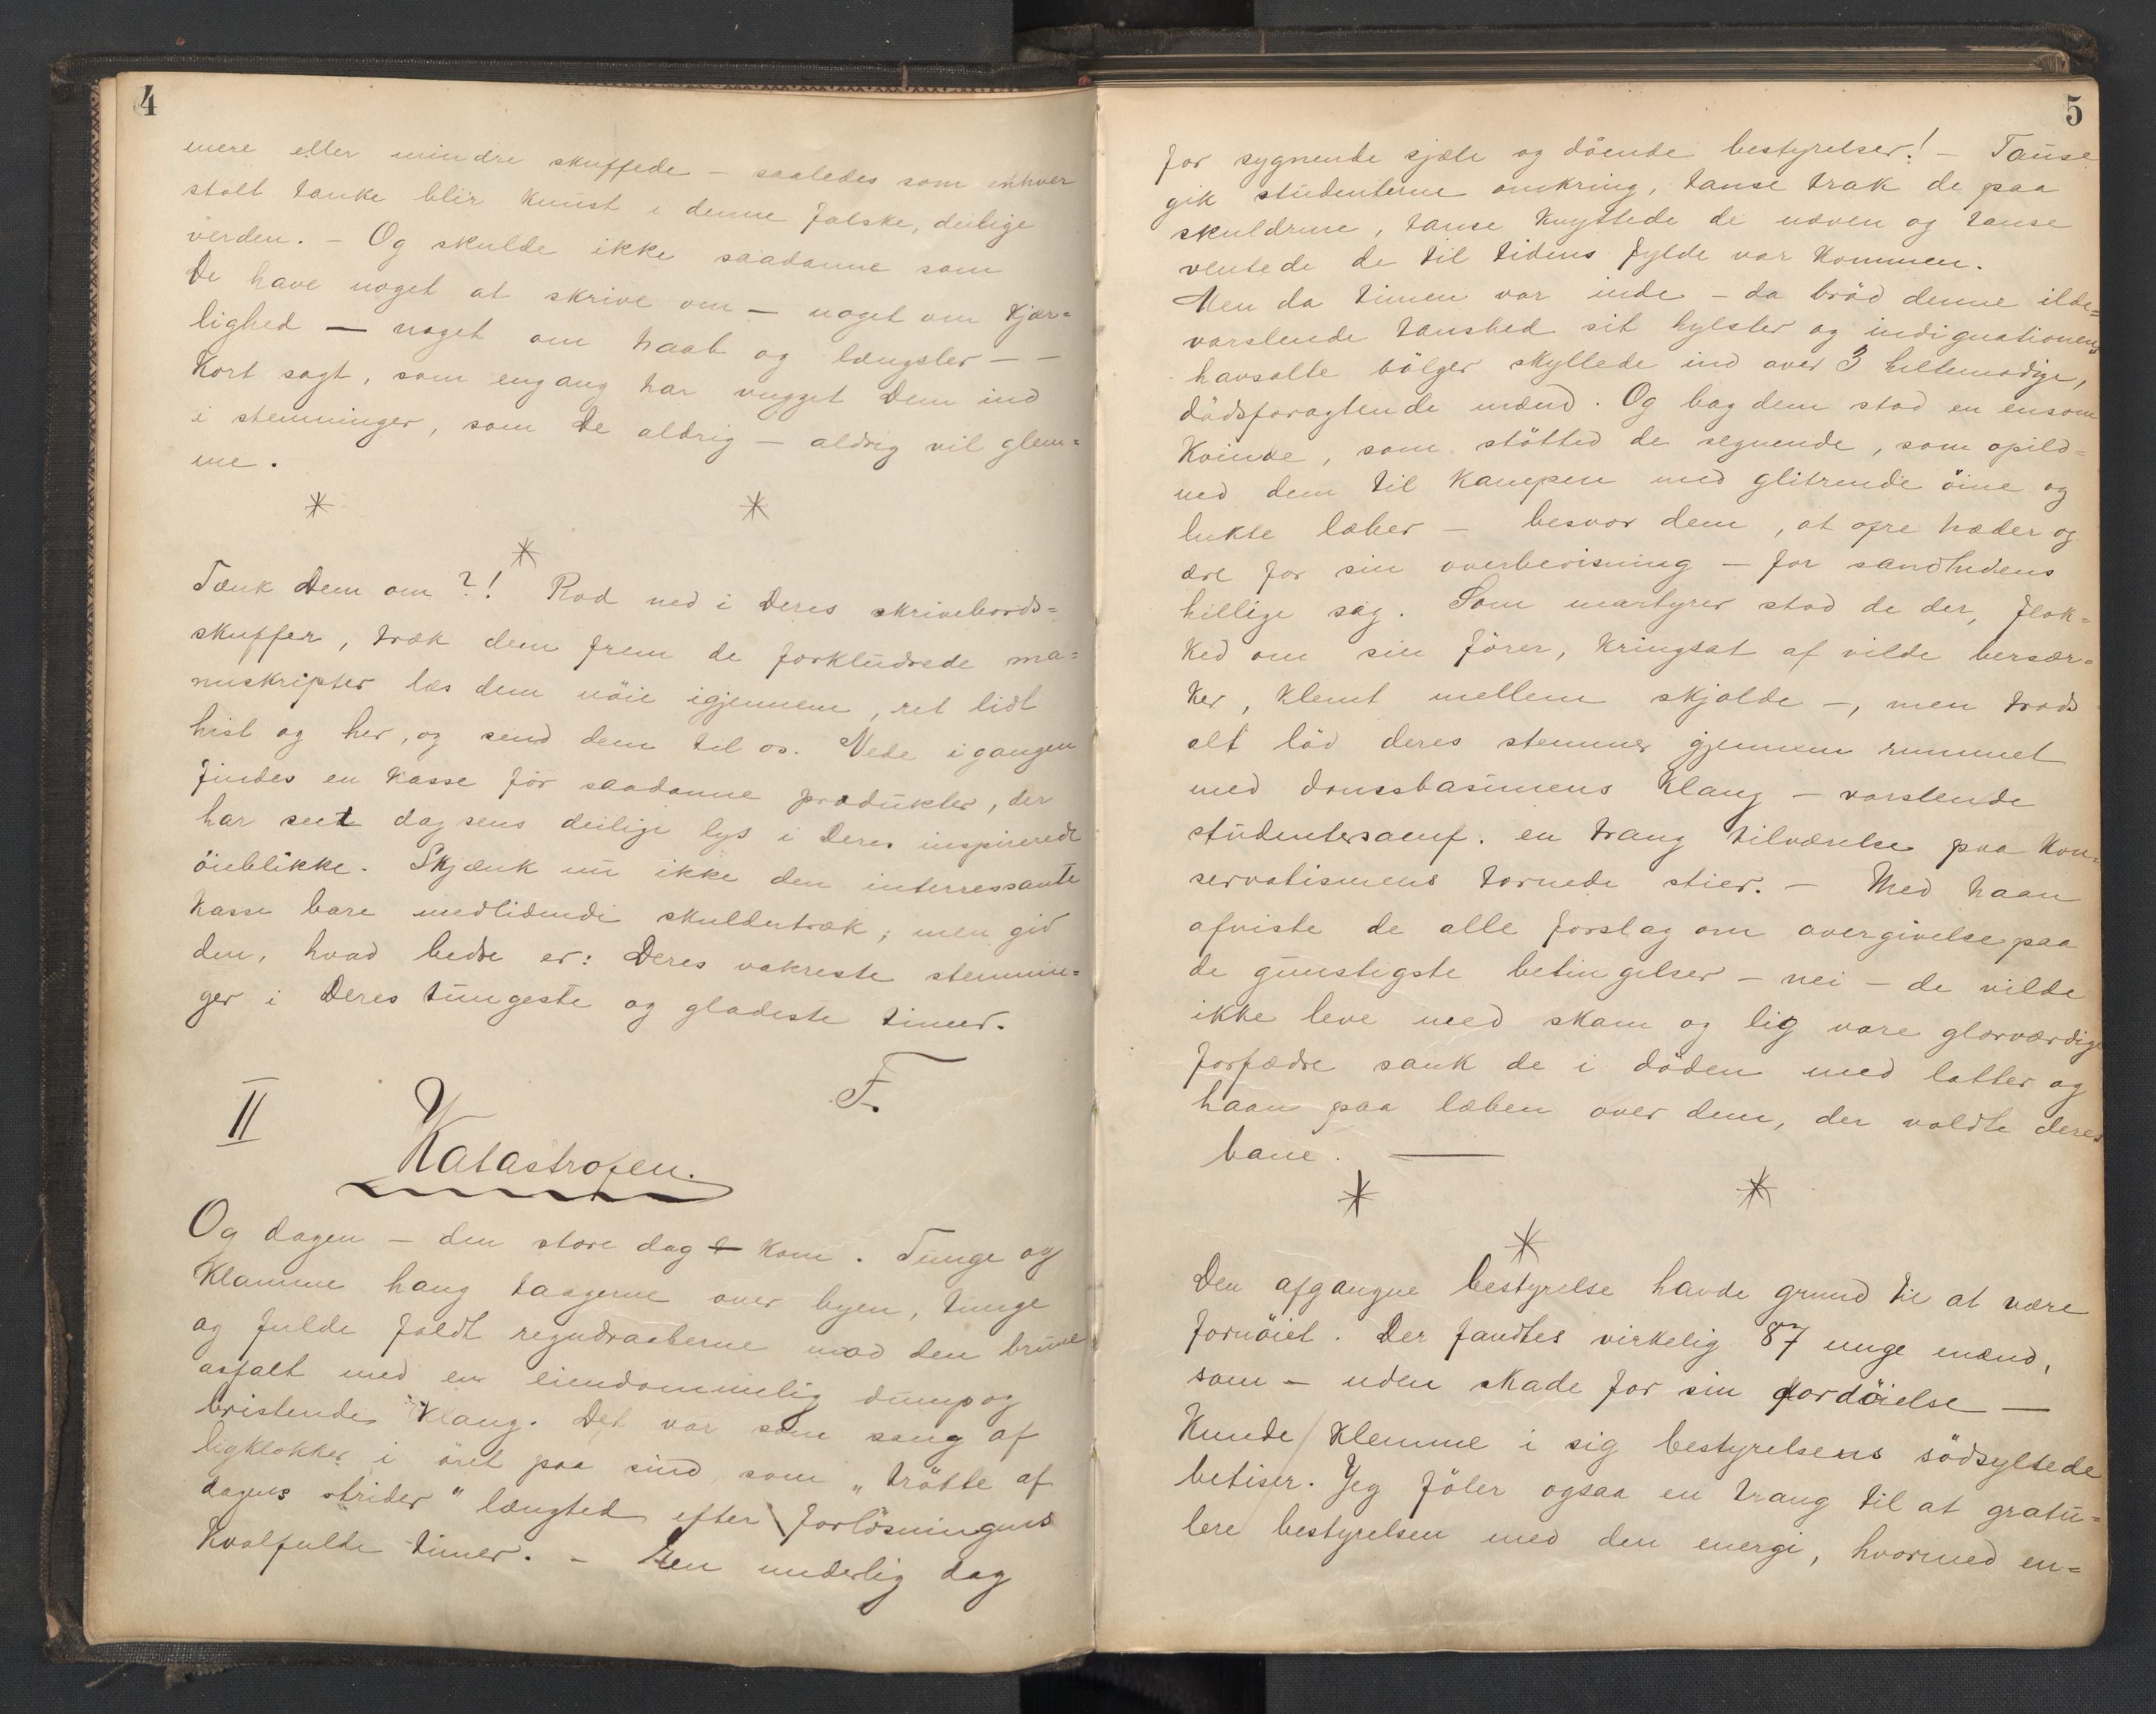 4
mere eller mindre skuffede – saaledes som enhver
stolt tanke blir knust i denne falske, deilige
verden. – Og skulde ikke saadanne som
De have noget at skrive om – noget om kjær=
lighed – noget om haab og længsler – –
kort sagt, som engang har vugget Dem ind
i stemninger, som De aldrig – aldrig vil glem=
me.
* *
*
Tænk Dem om ?! Rod ned i Deres skrivebords=
skuffer, træk dem frem de forkludrede ma=
nuskripter læs dem nöie igjennem, ret lidt
hist og her, og send dem til os. Nede i gangen
findes en kasse for saadanne produkter, der
har seet dagsens deilige lys i Deres inspirerede
öieblikke. Skjænk nu ikke den interressante
kasse bare medlidende skuldertræk; men giv
den, hvad bedre er: Deres vakreste stemnin=
ger i Deres tungeste og gladeste timer.
F.
II
Katastrofen.
Og dagen – den store dag – kom. Tunge og
klamme hang taagerne over byen, tunge
og fulde faldt regndraaberne mod den brune
asfalt med en eiendommelig dump og
bristende klang. Det var som sang af
ligklokker i öret paa sind, som „trötte af
dagens strider" længted efter forlösningens
kvalfulde timer. – En underlig dag
5
for sygnende sjæle og döende bestyrelser! – Tause
gik studenterne omkring, tause trak de paa
skuldrene, tause knyttede de næven og tause
ventede de til tidens fylde var kommen.
Men da timen var inde – da bröd denne ilde=
varslende taushed sit hylster og indignationens
havsalte bölger skyllede ind over 3 heltemodige,
dödsforagtende mænd. Og bag dem stod en ensom
kvinde, som stötted de segnende, som opild=
ned dem til kampen med glitrende öine og
lukte læber – besvor dem, at ofre hæder og
ære for sin overbevisning – for sandhedens
hellige sag. Som martyrer stod de der, flok=
ked om sin förer, kringsat af vilde bersær=
ker, klemt mellem skjolde –, men trods
alt löd deres stemmer gjennem rummet
med domsbasunens klang – varslende
studentersamf. en trang tilværelse paa kon=
servatismens tornede stier. – Med haan
afviste de alle forslag om overgivelse paa
de gunstigste betingelser – nei – de vilde
ikke leve med skam og lig vore glorværdige
forfædre sank de i döden med latter og
haan paa læben over dem, der voldte deres
bane. —
* *
*
Den afgangne bestyrelse havde grund til at være
fornöiet. Der fandtes virkelig 87 unge mænd,
som – uden skade for sin fordöielse –
kunde klemme i sig bestyrelsens södsyltede
betiser. Jeg föler ogsaa en trang til at gratu=
lere bestyrelsen med den energi, hvormed en=